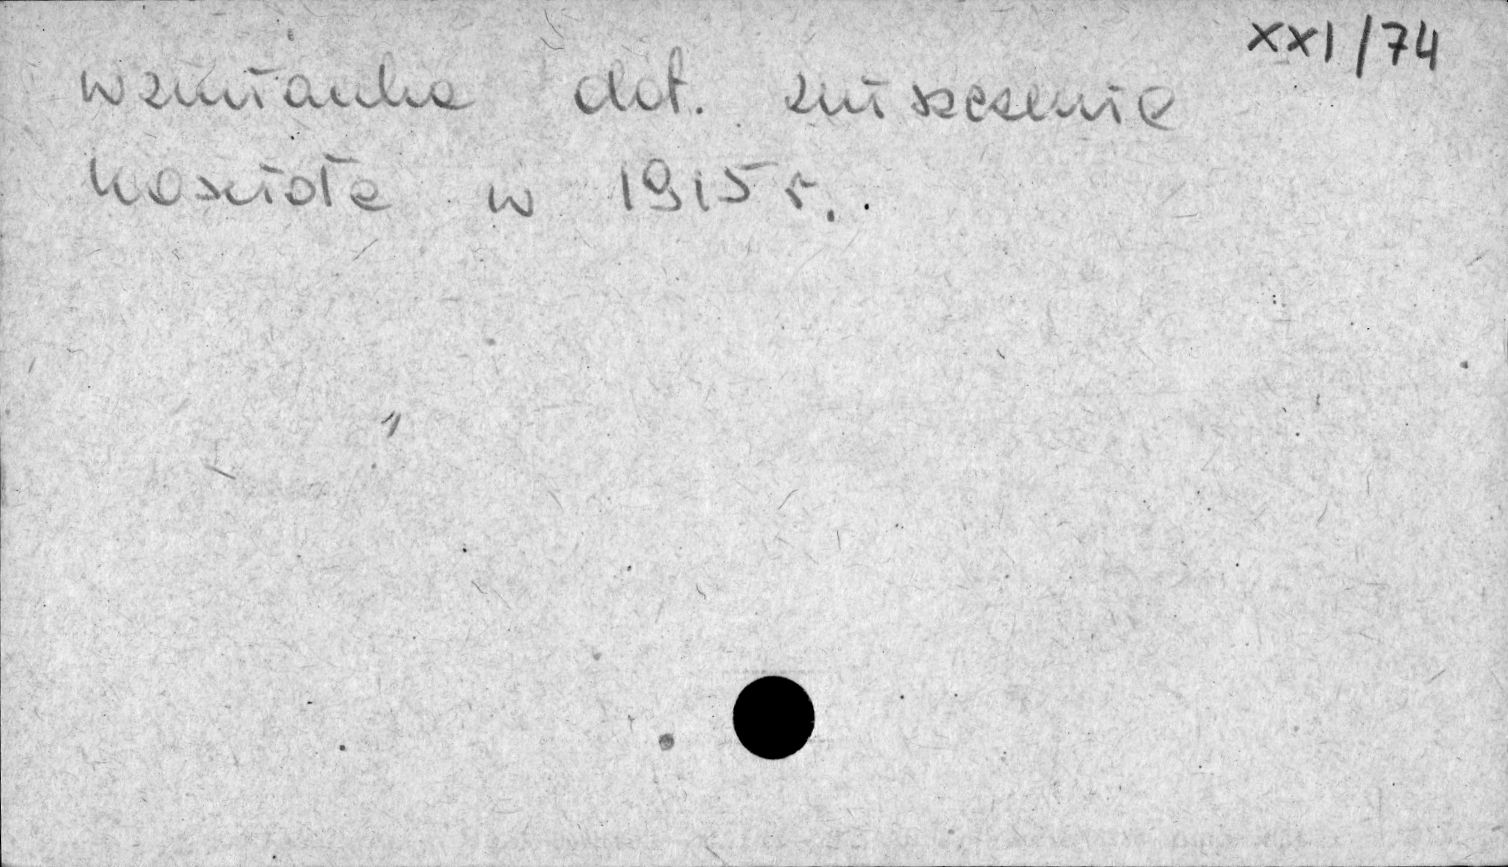 XXI/74
wzmianka dot. zniszczenia
kościoła w 1915 r.